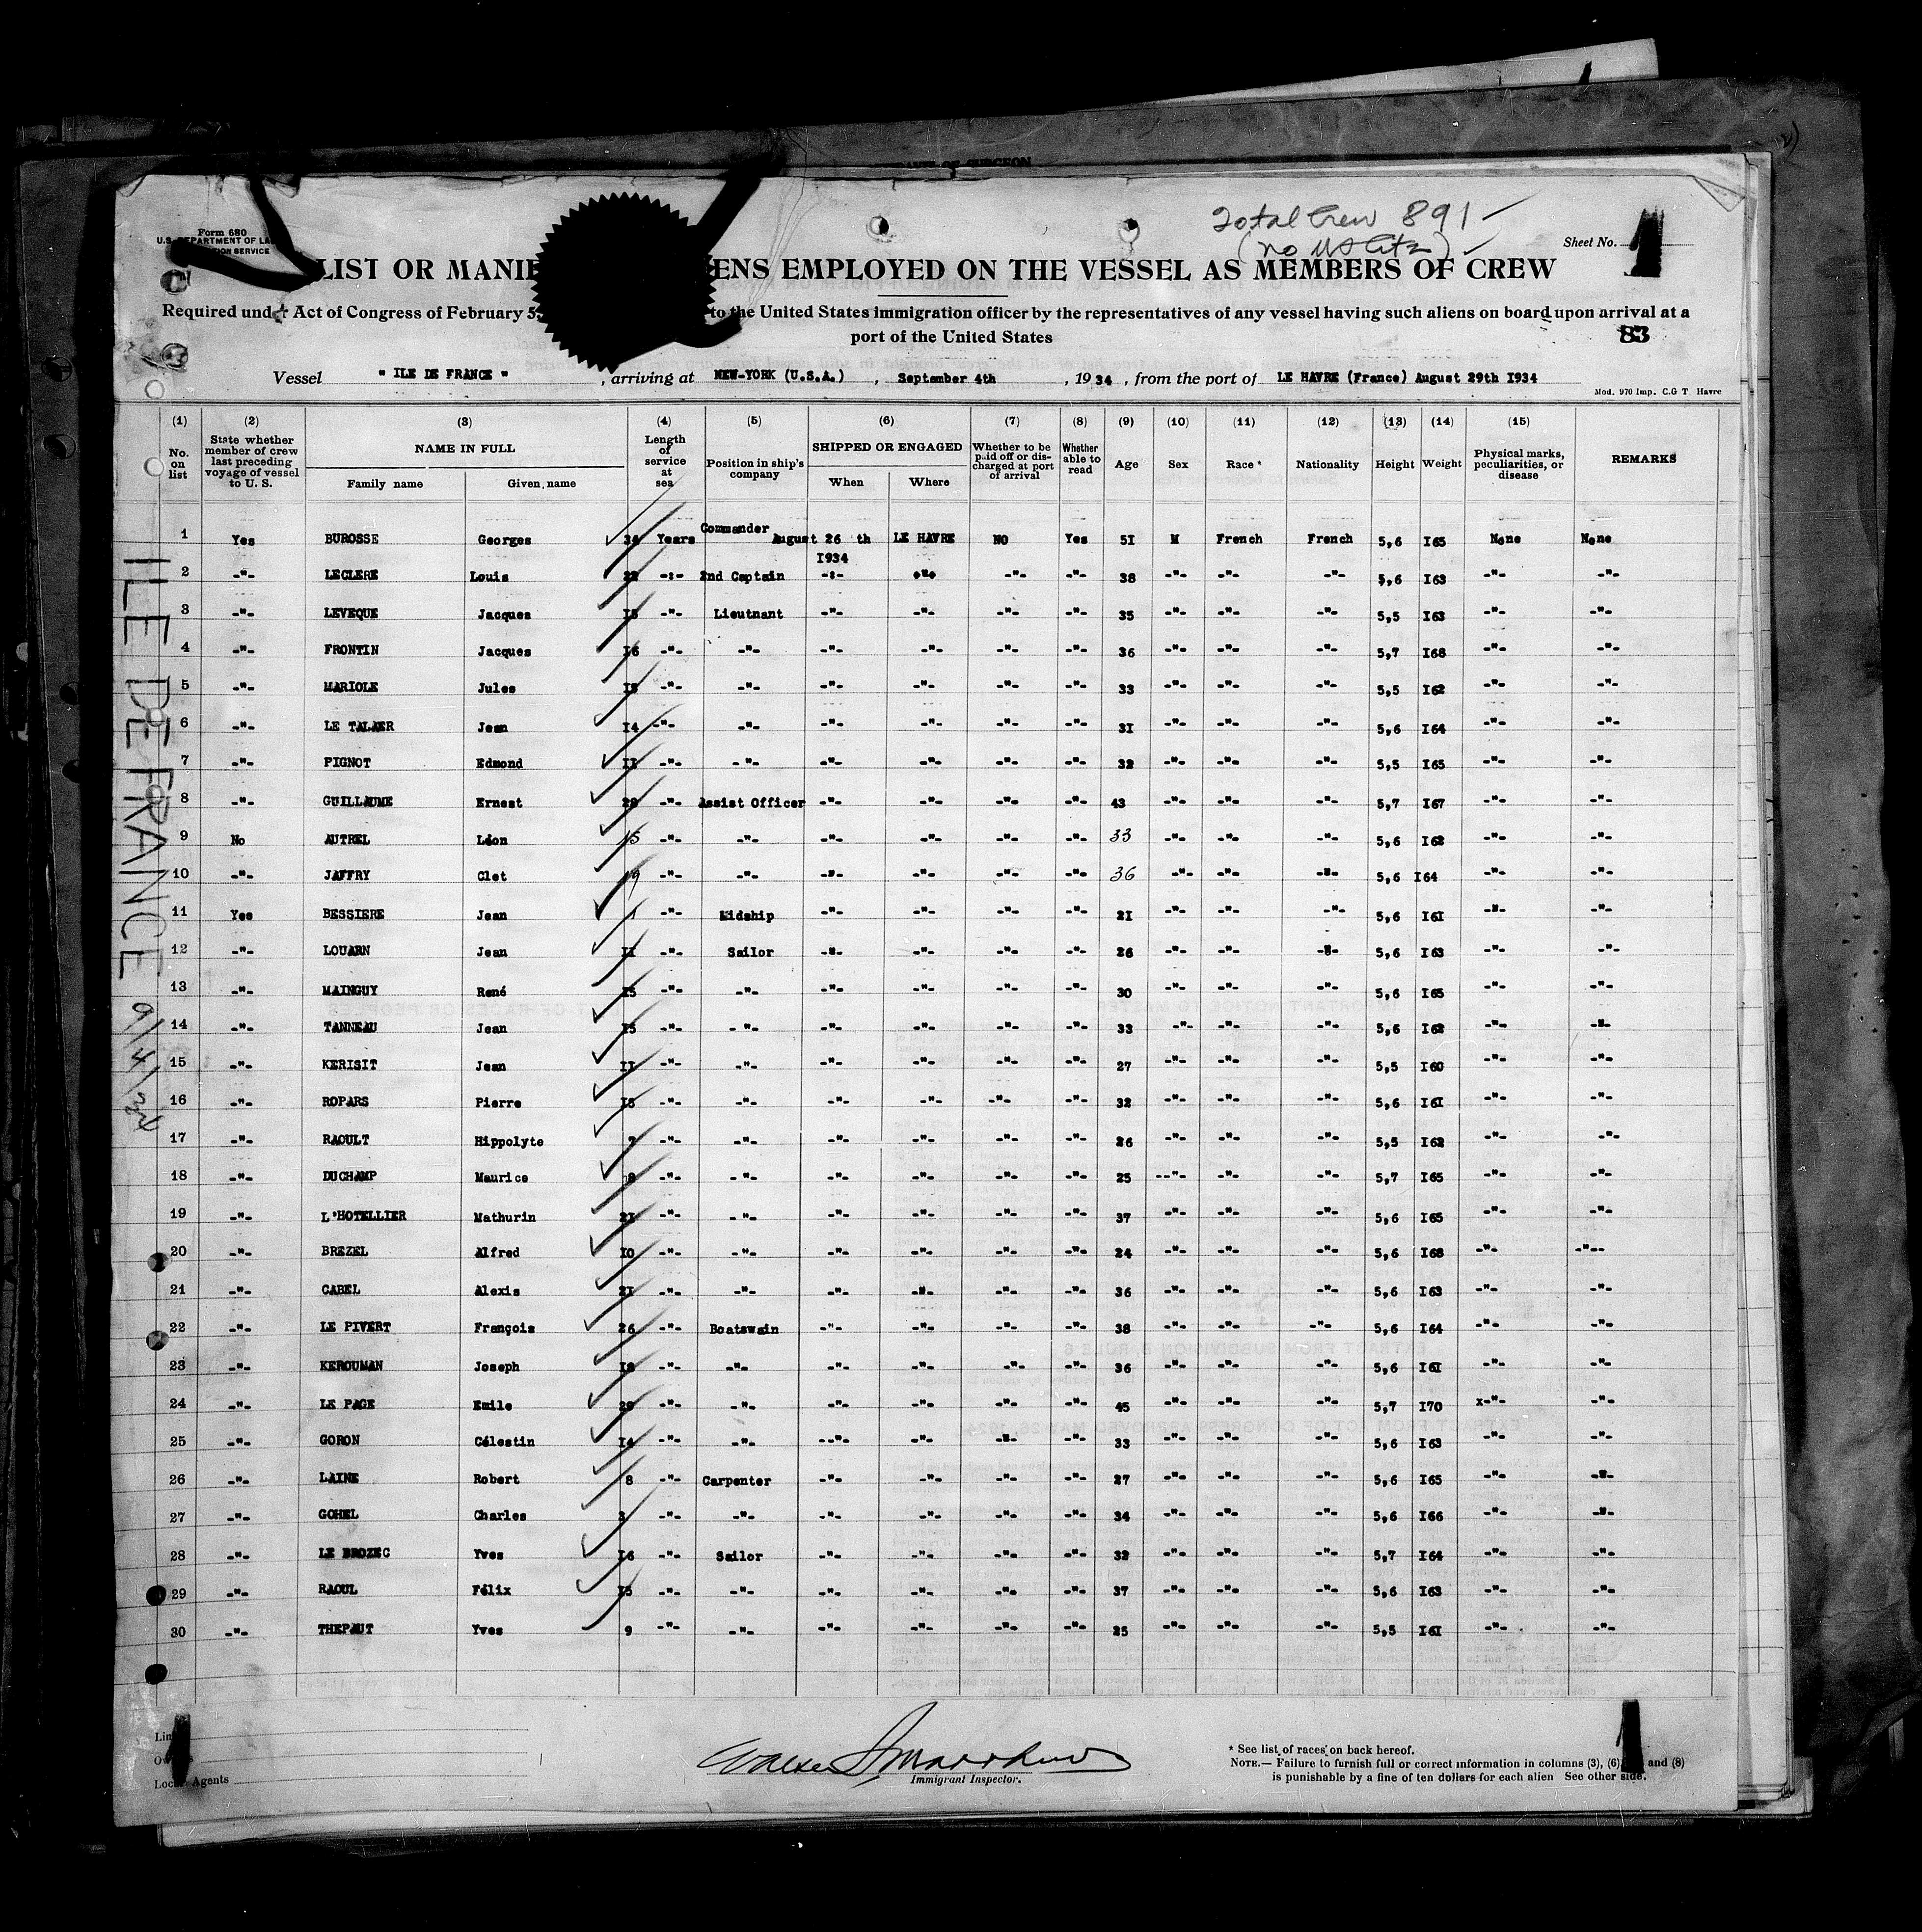 Total Crew 891
(no US Citz)
Form 680
U.S. DEPARTMENT OF
SERVICE
Sheet No. 1
LIST OR ENS EMPLOYED ON THE VESSEL AS MEMBERS OF CREW
Required under Act of Congress of February 5, to the United States immigration officer by the representatives of any vessel having such aliens on board upon arrival at a
port of the United States
83
Vessel " ILE DE FRANCE " , arriving at NEW-YORK (U.S.A.) , September 4th , 1934 , from the port of LE HAVRE (France) August 29th I934
Mod. 970 Imp. C.G T Havre
(1) (2) (3) (4) (5) (6) (7) (8) (9) (10) (11) (12) (13) (14) (15)
No. on list State whether member of crew last preceding voyage of vessel to U. S. NAME IN FULL Family name Given name Length of service at sea Position in ship's company SHIPPED OR ENGAGED When Where Whether to be paid off or discharged at port of arrival Whether able to read Age Sex Race * Nationality Height Weight Physical marks, peculiarities, or disease REMARKS
1 Yes BUROSSE Georges 34 Years Commander August 26 th I934 LE HAVRE NO Yes 5I M French French 5,6 I65 None None
2 -"- LECLERE Louis 22 -:- 2nd Captain -:- -"- -"- -"- 38 -"- -"- -"- 5,6 I63 -"- -"-
3 -"- LEVEQUE Jacques I5 -"- Lieutnant -"- -"- -"- -"- 35 -"- -"- -"- 5,5 I63 -"- -"-
4 -"- FRONTIN Jacques I6 -"- -"- -"- -"- -"- -"- 36 -"- -"- -"- 5,7 I68 -"- -"-
5 -"- MARIOLE Jules I5 -"- -"- -"- -"- -"- -"- 33 -"- -"- -"- 5,5 I62 -"- -"-
6 -"- LE TALAER Jean I4 -"- -"- -"- -"- -"- -"- 3I -"- -"- -"- 5,6 I64 -"- -"-
7 -"- PIGNOT Edmond II -"- -"- -"- -"- -"- -"- 32 -"- -"- -"- 5,5 I65 -"- -"-
8 -"- GUILLAUME Ernest 28 -"- Assist Officer -"- -"- -"- -"- 43 -"- -"- -"- 5,7 I67 -"- -"-
9 No AUTREL Léon 15 -"- -"- -"- -"- -"- -"- 33 -"- -"- -"- 5,6 I62 -"- -"-
10 -"- JAFFRY Clet 19 -"- -"- -"- -"- -"- -"- 36 -"- -"- -"- 5,6 I64 -"- -"-
11 Yes BESSIERE Jean -"- Midship -"- -"- -"- -"- 2I -"- -"- -"- 5,6 I6I -"- -"-
12 -"- LOUARN Jean II -"- Sailor -"- -"- -"- -"- 26 -"- -"- -"- 5,6 I63 -"- -"-
13 -"- MAINGUY René I5 -"- -"- -"- -"- -"- -"- 30 -"- -"- -"- 5,6 I65 -"- -"-
14 -"- TANNEAU Jean I5 -"- -"- -"- -"- -"- -"- 33 -"- -"- -"- 5,6 I62 -"- -"-
15 -"- KERISIT Jean II -"- -"- -"- -"- -"- -"- 27 -"- -"- -"- 5,5 I60 -"- -"-
16 -"- ROPARS Pierre I5 -"- -"- -"- -"- -"- -"- 32 -"- -"- -"- 5,6 I6I -"- -"-
17 -"- RAOULT Hippolyte 7 -"- -"- -"- -"- -"- -"- 26 -"- -"- -"- 5,5 I62 -"- -"-
18 -"- DUCHAMP Maurice 8 -"- -"- -"- -"- -"- -"- 25 --"- -"- -"- 5,7 I65 -"- -"-
19 -"- L'HOTELLIER Mathurin 2I -"- -"- -"- -"- -"- -"- 37 -"- -"- -"- 5,6 I65 -"- -"-
20 -"- BREZEL Alfred I0 -"- -"- -"- -"- -"- -"- 24 -"- -"- -"- 5,6 I68 -"- -"--
21 -"- CABEL Alexis 2I -"- -"- -"- -"- -"- -"- 36 -"- -"- -"- 5,6 I63 -"- -"-
22 -"- LE PIVERT François 26 -"- Boatswain -"- -"- -"- -"- 38 -"- -"- -"- 5,6 I64 -"- -"-
23 -"- KEROUMAN Joseph I8 -"- -"- -"- -"- -"- -"- 36 -"- -"- -"- 5,6 I6I -"- -"-
24 -"- LE PAGE Emile 29 -"- -"- -"- -"- -"- -"- 45 -"- -"- -"- 5,7 I70 x-"- -"-
25 -"- GORON Célestin I4 -"- -"- --"- -"- -"- -"- 33 -"- -"- -"- 5,6 I63 -"- -"-
26 -"- LAINE Robert 8 -"- Carpenter -"- -"- -"- -"- 27 -"- -"- -"- 5,6 I65 -"- -"-
27 -"- GOHEL Charles 3 -"- -"- -"- -"- -"- -"- 34 -"- -"- -"- 5,6 I66 -"- -"-
28 -"- LE BROZEC Yves I6 -"- Sailor -"- -"- -"- -"- 32 -"- -"- -"- 5,7 I64 -"- -"-
29 -"- RAOUL Félix I5 -"- -"- -"- -"- -"- -"- 37 -"- -"- -"- 5,6 I63 -"- -"-
30 -"- THEPAUT Yves 9 -"- -"- -"- -"- -"- -"- 25 -"- -"- -"- 5,5 I6I -"- -"-
ILE DE FRANCE 9/4/34
Local Agents
Immigrant Inspector.
* See list of races on back hereof.
NOTE.— Failure to furnish full or correct information in columns (3), (6) and (8)
is punishable by a fine of ten dollars for each alien See other side.